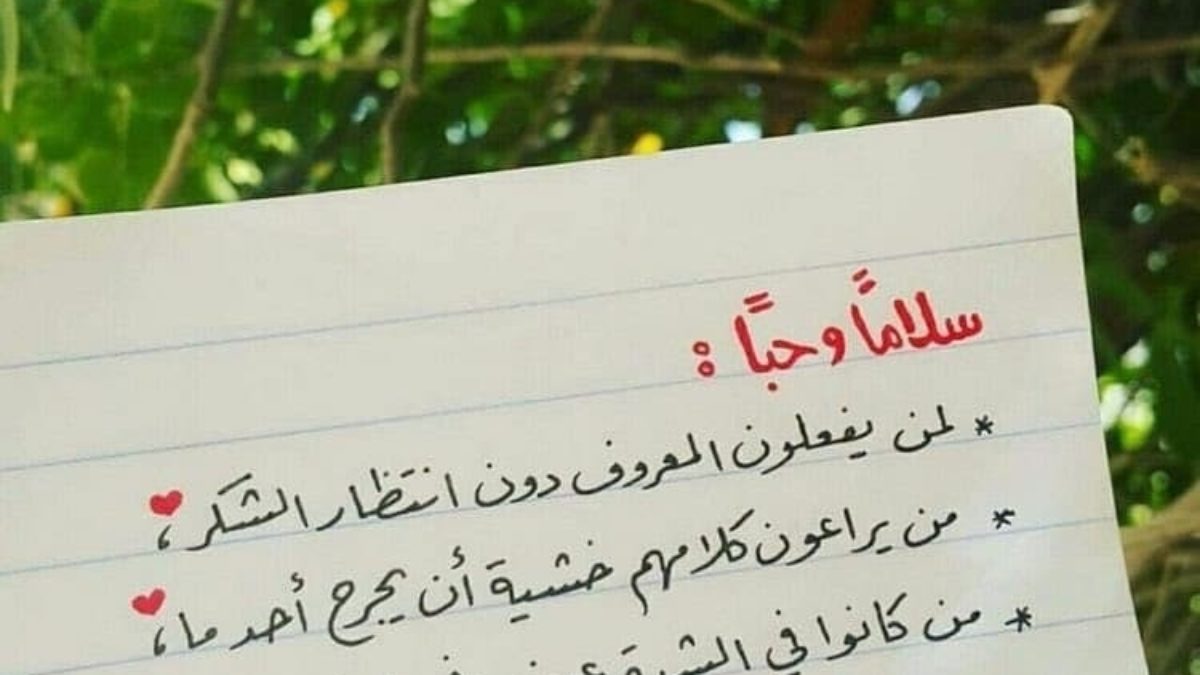 سلاماً وحباً :
* لمن يفعلون المعروف دون انتظار الشكر،
* من يراعون كلامهم خشية أن يجرح أحد ما،
* من كانوا في